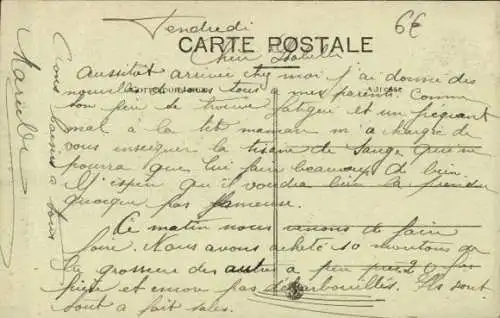 Vendredi
6€
CARTE POSTALE
Chère
Aussitôt arrivée chez moi j'ai donné des
nouvelles de vous tous a mes parents. Comme
ton père se trouve fatigué et un fréquent
mal à la tête maman m'a chargée de
vous enseigner la tisane de Sauge qui ne
pourra que lui faire beaucoup de bien.
J'espère qu'il voudra bien la prendre
quoique pas fameuse.
Ce matin nous venons de faire
foire. Nous avons acheté 10 moutons de
la grosseur des autres a peu près 20
et encore pas débarbouillés. Ils sont
tout a fait sales.
Correspondance
Adresse
bons baisers a tous